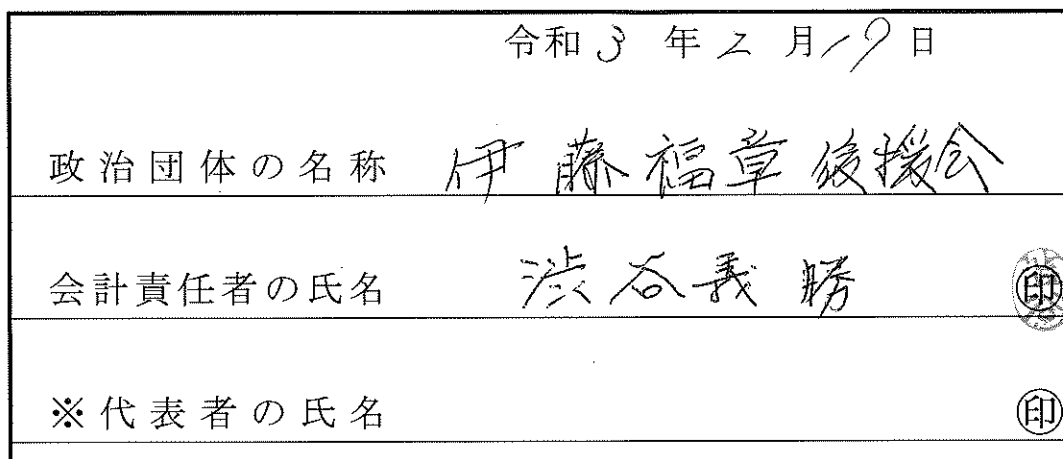 令和3年2月19日
政治団体の名称 伊藤福章後援会
会計責任者の氏名 渋谷義勝 ㊞
※代表者の氏名 ㊞